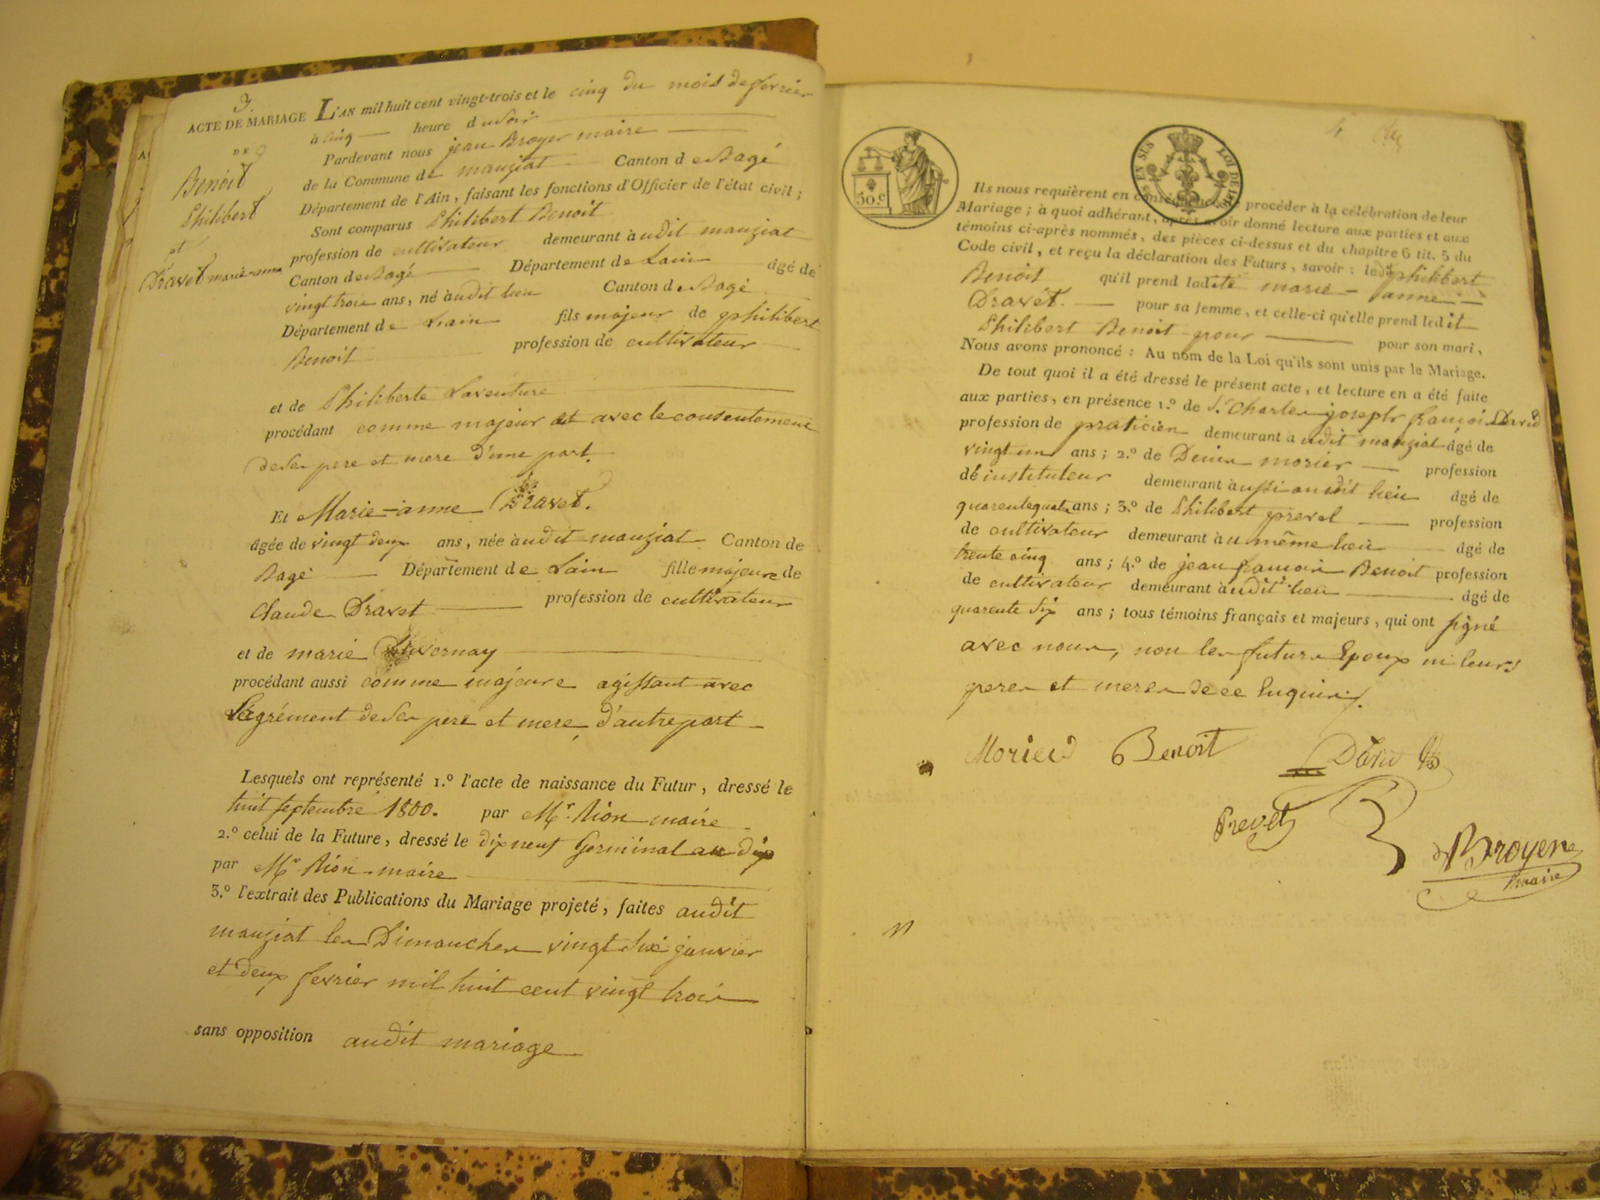 3.
ACTE DE MARIAGE
Benoit
Philibert
et
Dravet marie-anne
L'AN mil huit cent vingt-trois et le cinq du mois de fevrier
à cinq heure du soir
Pardevant nous jean Broyer maire
de la Commune de manziat Canton de Bagé
Département de l'Ain, faisant les fonctions d'Officier de l'état civil ;
Sont comparus Philibert Benoit
profession de cultivateur demeurant audit manziat
Canton de Bagé Département de Lain âgé de
vingt trois ans, né audit lieu Canton de Bagé
Département de Lain fils majeur de philibert
Benoit profession de cultivateur
et de Philiberte Laventure
procédant comme majeur et avec le consentement
de ses pere et mere d'une part.
Et Marie-anne Dravet.
âgée de vingt deux ans, née audit manziat Canton de
Bagé Département de Lain fille majeure de
Claude Dravet profession de cultivateur
et de marie Duvernay
procédant aussi comme majeure agissant avec
l'agrément de ses pere et mere, d'autre part
Lesquels ont représenté 1.º l'acte de naissance du Futur, dressé le
huit septembre 1800. par Mr. Rion maire
2.º celui de la Future, dressé le dixneuf Germinal an dix
par Mr Rion maire
3.º l'extrait des Publications du Mariage projeté, faites audit
manziat les Dimanches vingt six janvier
et deux fevrier mil huit cent vingt trois
sans opposition audit mariage
4
50.c
EN SUS
LOI DE
Ils nous requièrent en conséquence de procéder à la célébration de leur
Mariage ; à quoi adhérant, après avoir donné lecture aux parties et aux
témoins ci-après nommés, des pièces ci-dessus et du chapitre 6 tit. 5 du
Code civil, et reçu la déclaration des Futurs, savoir : ledit philibert
Benoit qu'il prend ladite marie-anne
Dravet. pour sa femme, et celle-ci qu'elle prend ledit
Philibert Benoit pour pour son mari,
Nous avons prononcé : Au nom de la Loi qu'ils sont unis par le Mariage.
De tout quoi il a été dressé le présent acte, et lecture en a été faite
aux parties, en présence 1.º de Sr. Charles joseph francois David
profession de praticien demeurant audit manziat âgé de
vingt un ans ; 2.º de Denis morier profession
d'instituteur demeurant aussi audit lieu âgé de
quarente quatre ans ; 3.º de Philibert prevel profession
de cultivateur demeurant au même lieu âgé de
trente cinq ans ; 4.º de jean francois Benoit profession
de cultivateur demeurant audit lieu âgé de
quarente six ans ; tous témoins français et majeurs, qui ont signé
avec nous, non les futurs Epoux ni leurs
peres et meres de ce Enquis.
Morier Benoit David
Prevel
Broyer
maire